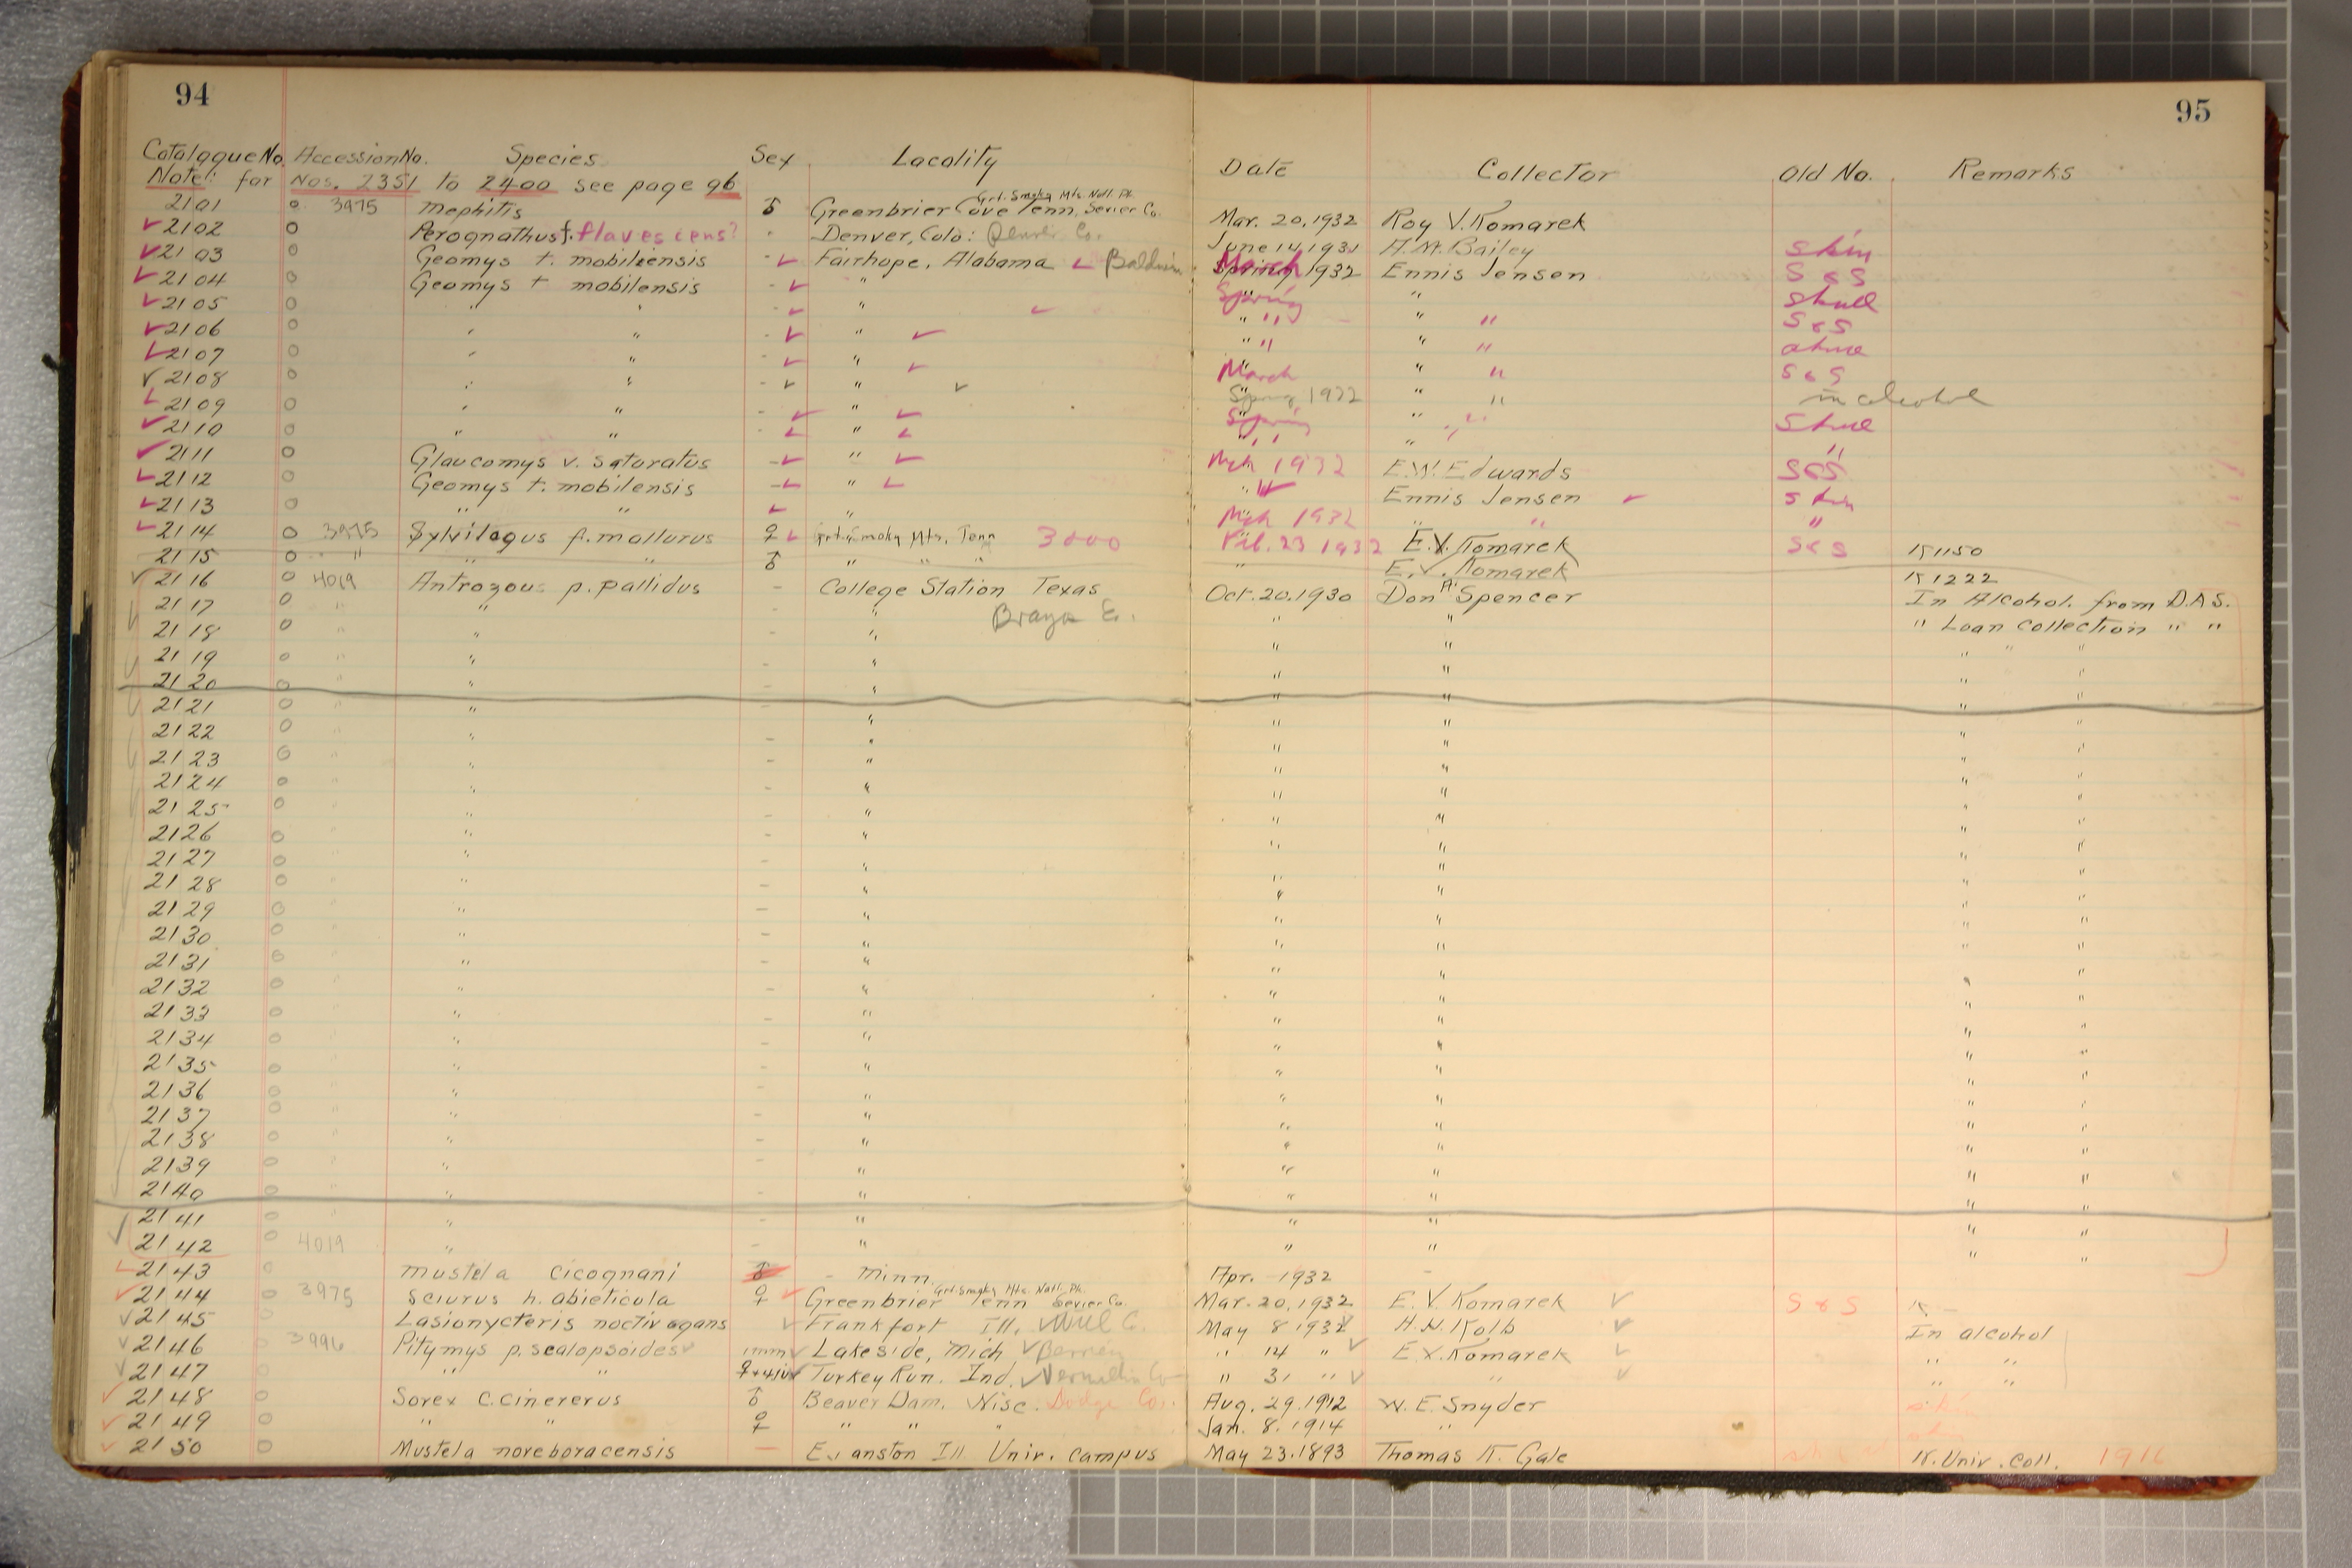 94
95
Catalogue No. Accession No. Species Sex Locality Date Collector Old No. Remarks
Note: for Nos. 2351 to 2400 see page 96
2101 o 3975 Mephitis ♂ Greenbrier Cove Tenn. Sevier Co. Grt. Smoky Mts. Natl. Pk. Mar. 20, 1932 Roy V. Komarek
✓ 2102 o Perognathus f. flavescens? Denver, Colo: Denver Co. June 14, 1931 A.M. Bailey skin
✓ 2103 o Geomys t. mobilensis - ✓ Fairhope, Alabama ✓ Baldwin March 1932 Ennis Jensen S & S
✓ 2104 o Geomys t mobilensis - ✓ " Spring " skull
✓ 2105 o " " - ✓ " ✓ " " " " S & S
✓ 2106 o " " - ✓ " ✓ " " " "
✓ 2107 o " " - ✓ " ✓ March " " S & S
✓ 2108 o " " - ✓ " ✓ Spring 1932 " " in alcohol
✓ 2109 o " " - ✓ " ✓ Spring " " Skull
✓ 2110 o " " - ✓ " ✓ " " " " "
✓ 2111 o Glaucomys v. saturatus - ✓ " ✓ Mch 1932 E.W. Edwards S & S
✓ 2112 o Geomys t. mobilensis - ✓ " ✓ " " Ennis Jensen ✓ skin
✓ 2113 o " " ✓ " Mch 1932 " " "
✓ 2114 o 3975 Sylvilagus f. mallurus ♀ ✓ Grt. Smoky Mts, Tenn 3000 Feb. 23 1932 E.V. Komarek S & S K1150
2115 o " " " ♂ " " " " E.V. Komarek K1222
✓ 2116 o 4019 Antrozous p. pallidus - College Station Texas Oct. 20. 1930 Don A. Spencer In Alcohol. from D.A.S.
2117 o " " - " " " " Loan Collection " "
2118 o " " - " " " " " "
2119 o " " - " " " " "
2120 o " " - " " " " "
2121 o " " - " " " " "
2122 o " - " " " " "
2123 o " " - " " " " "
2124 o " " - " " " " "
2125 o " - " " " " "
2126 o " - " " " " "
2127 o " " - " " " " "
2128 o " " - " " " " "
2129 o " - " " " " "
2130 o " " - " " " " "
2131 o " " - " " " " "
2132 o " - " " " " "
2133 o " " - " " " " "
2134 o " - " " " " "
2135 o " - " " " " "
2136 o " - " " " " "
2137 o " " - " " " " "
2138 o " - " " " " "
2139 o " " - " " " " "
2140 o " " - " " " " "
2141 o " " - " " " " "
2142 o 4019 " - " " " " "
✓ 2143 o Mustela cicognani ♂ - Minn. Apr. 1932 -
✓ 2144 3975 Sciurus h. abieticola ♀ ✓ Greenbrier Tenn Sevier Co. Grt. Smoky Mts. Natl. Pk. Mar. 20, 1932 E.V. Komarek ✓ S & S K -
✓ 2145 o Lasionycteris noctivagans ✓ Frankfort Ill. ✓ Will C. May 8 1932 ✓ H.H. Kolb ✓ In alcohol
✓ 2146 o 3996 Pitymys p. scalopsoides ✓ imm ✓ Lakeside, Mich ✓ Berrien " 14 " ✓ E.V. Komarek ✓ " "
✓ 2147 o " " ♀ Turkey Run. Ind. " 31 " ✓ " ✓ " "
✓ 2148 o Sorex c. cinererus ♂ Beaver Dam, Wisc. Dodge Co. Aug. 29. 1912 W.E. Snyder
✓ 2149 o " " ♀ " " " Jan. 8. 1914 "
✓ 2150 o Mustela noreboracensis - Evanston Ill Univ. campus May 23. 1893 Thomas K. Gale N. Univ. Coll. 1916